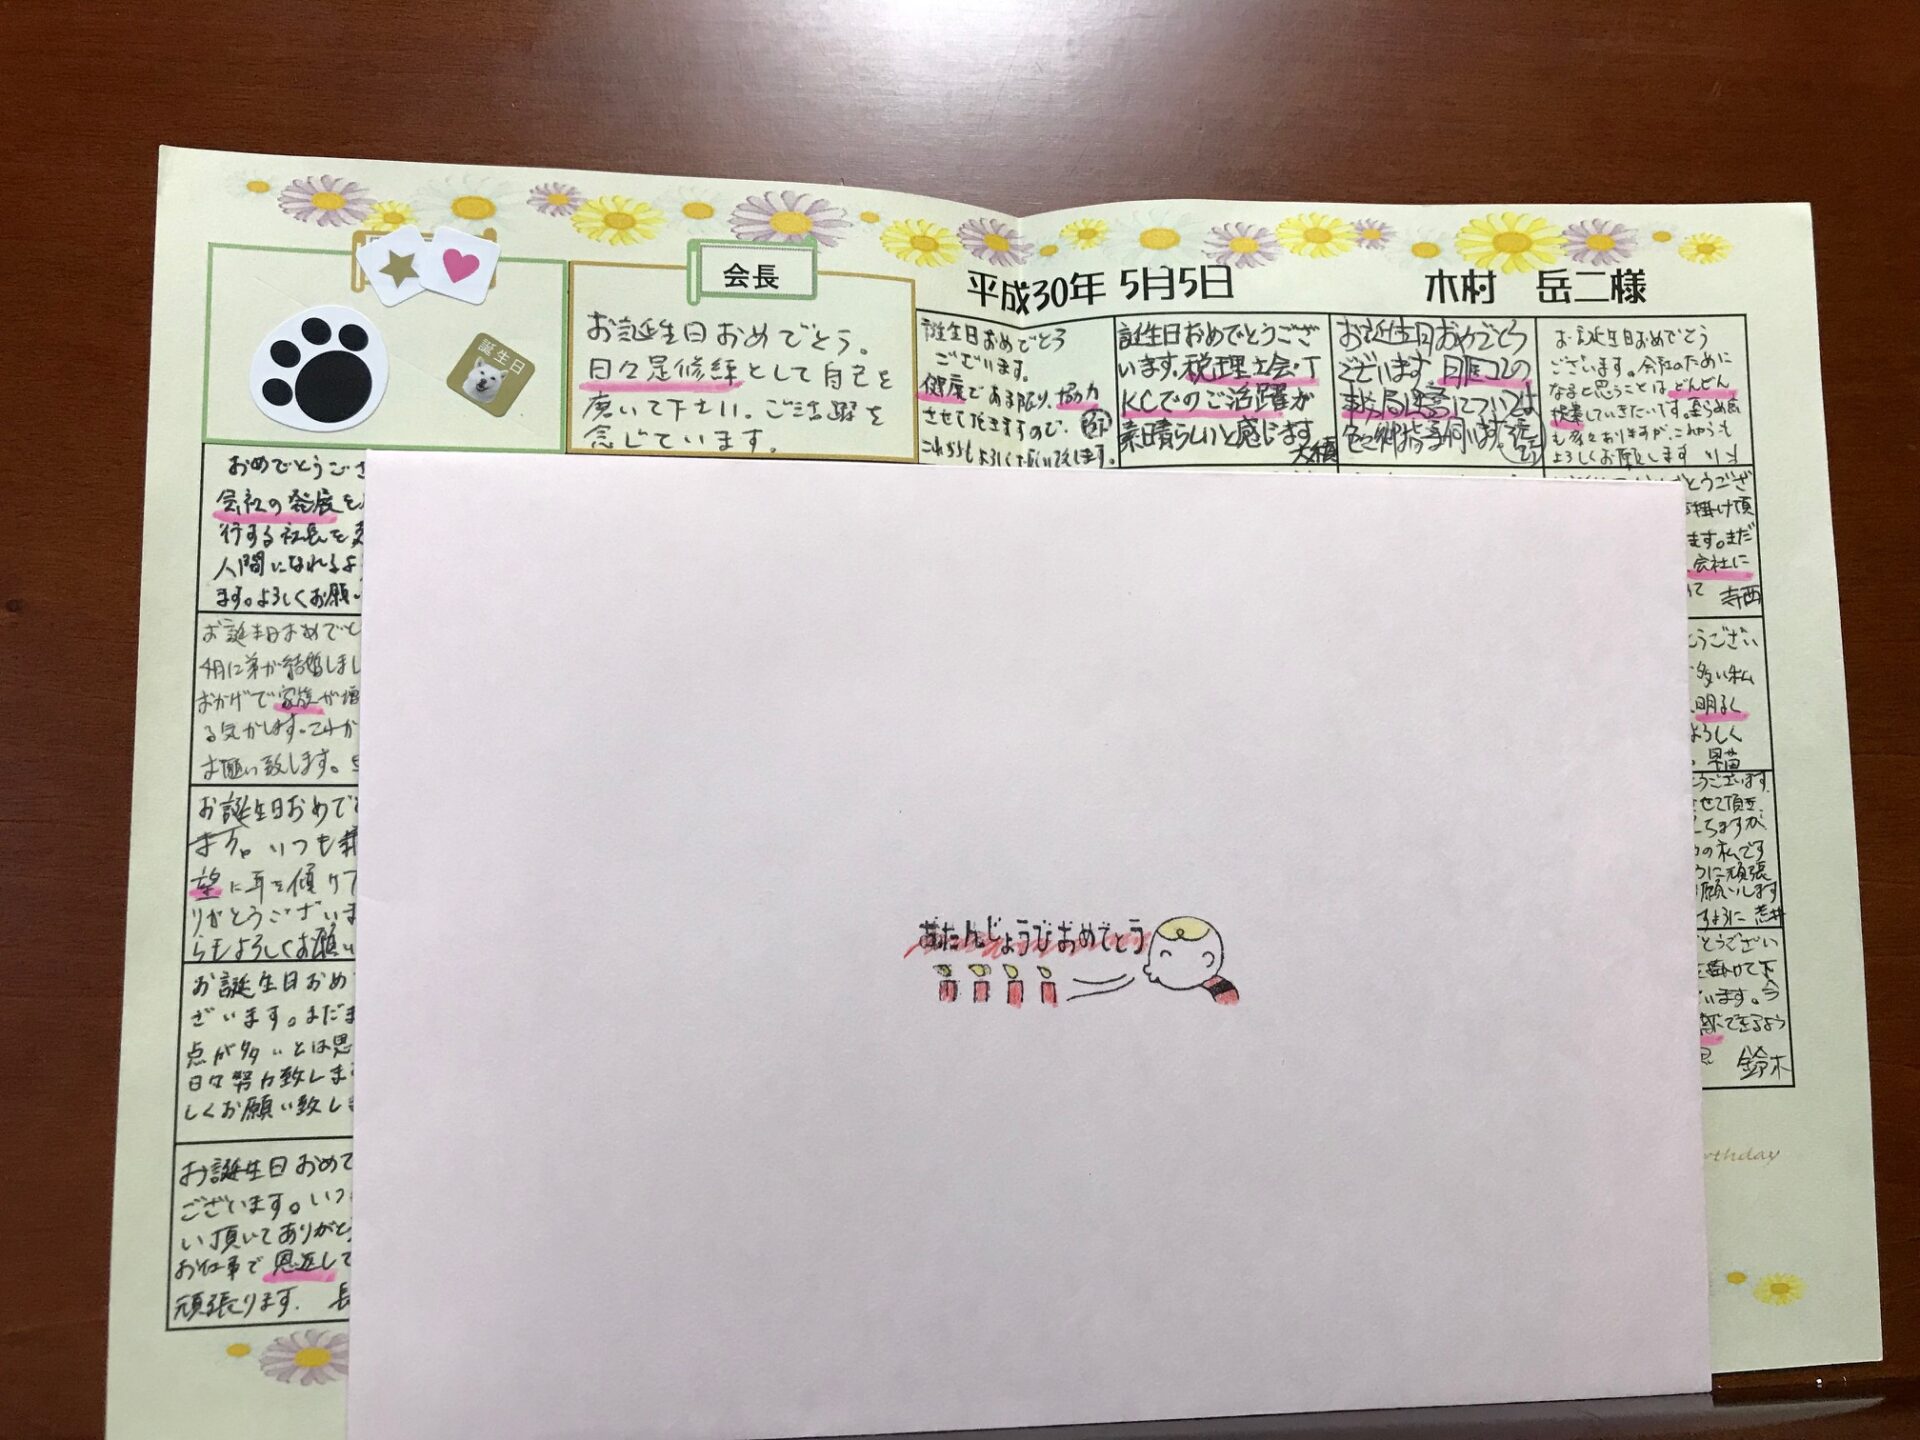 平成30年 5月5日
木村 岳二様
会長
お誕生日おめでとう。
日々是修練として自己を
磨いて下さい。ご活躍を
念じています。
誕生日
誕生日おめでとう
ございます。
健康である限り、協力
させて頂きますので、
これからもよろしくお願いします。
誕生日おめでとうござ
います。税理士会・T
KCでのご活躍が
素晴らしいと感じます
大槻
お誕生日おめでとう
ございます。
お誕生日おめでとう
ございます。会社のために
なると思うことはどんどん
提案していきたいです。至らぬ点
も多々ありますが、これからも
よろしくお願いします
おめでとうござ
会社の発展を
行する社長を
人間になれるよ
ます。よろしくお願い
お誕生日おめでと
4月に弟が結婚しまし
おかげで家族が増
る気がします。これか
お願い致します。
お誕生日おめで
ます。いつも
望に耳を傾けて
りがとうございま
らもよろしくお願い
お誕生日おめ
ざいます。まだま
点が多いとは思
日々努力致します
しくお願い致しま
お誕生日おめで
ございます。いつ
い頂いてありがと
お仕事で恩返しで
頑張ります。 長
とうござ
掛け頂
ます。まだ
会社に
て 寺西
とうござい
多い私
明るく
よろしく
早苗
うございます。
せて頂き、
ちますが
の私です
うに頑張
願いします
すように 荒井
とうござい
を掛けて下
います。今
にできるよう
鈴木
おたんじょうびおめでとう
rthday